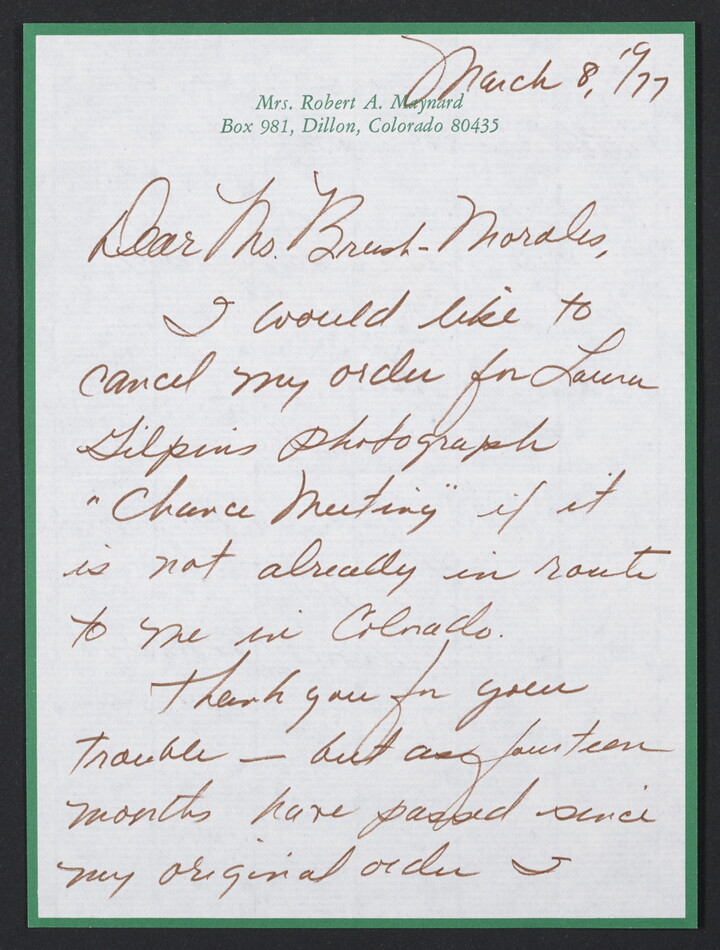 March 8, 1977
Mrs. Robert A. Maynard
Box 981, Dillon, Colorado 80435
Dear Ms. Brush-Morales,
I would like to
cancel my order for Laura
Gilpins photograph
"Chance Meeting" if it
is not already in route
to me in Colorado.
Thank you for your
trouble — but as fourteen
months have passed since
my original order I